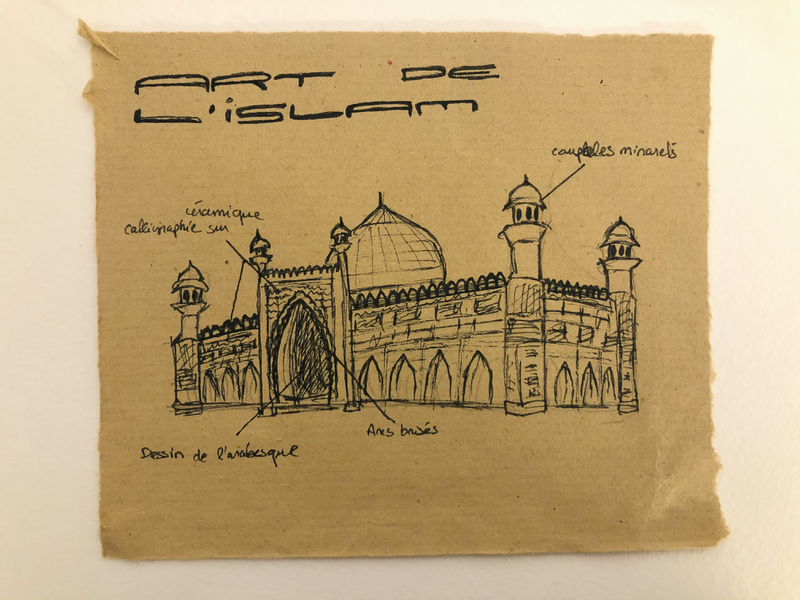 ART DE
L'ISLAM
coupoles minarets
céramique
calligraphie sur
Arcs brisés
Dessin de l'arabesque